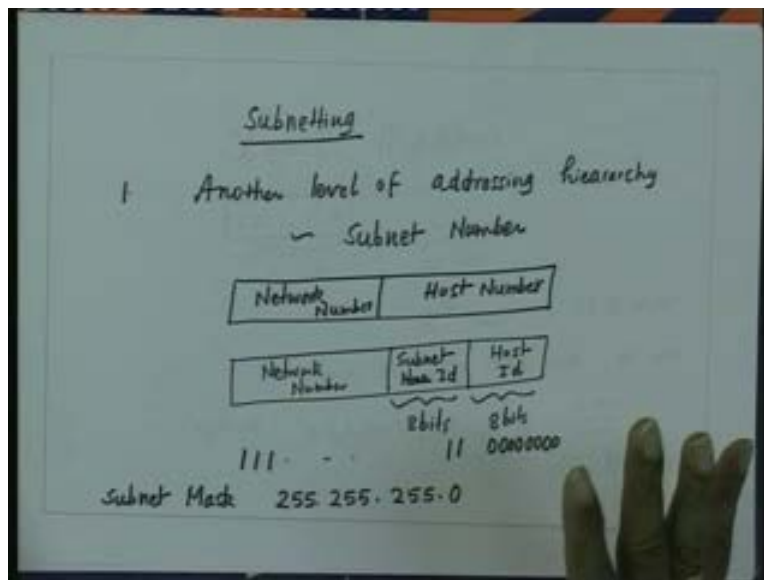 Subnetting
1 Another level of addressing hiearchy
~ Subnet Number
Network Number Host Number
Network Number Subnet Id Host Id
8bits 8bits
111 . - . 11 00000000
Subnet Mask 255.255.255.0